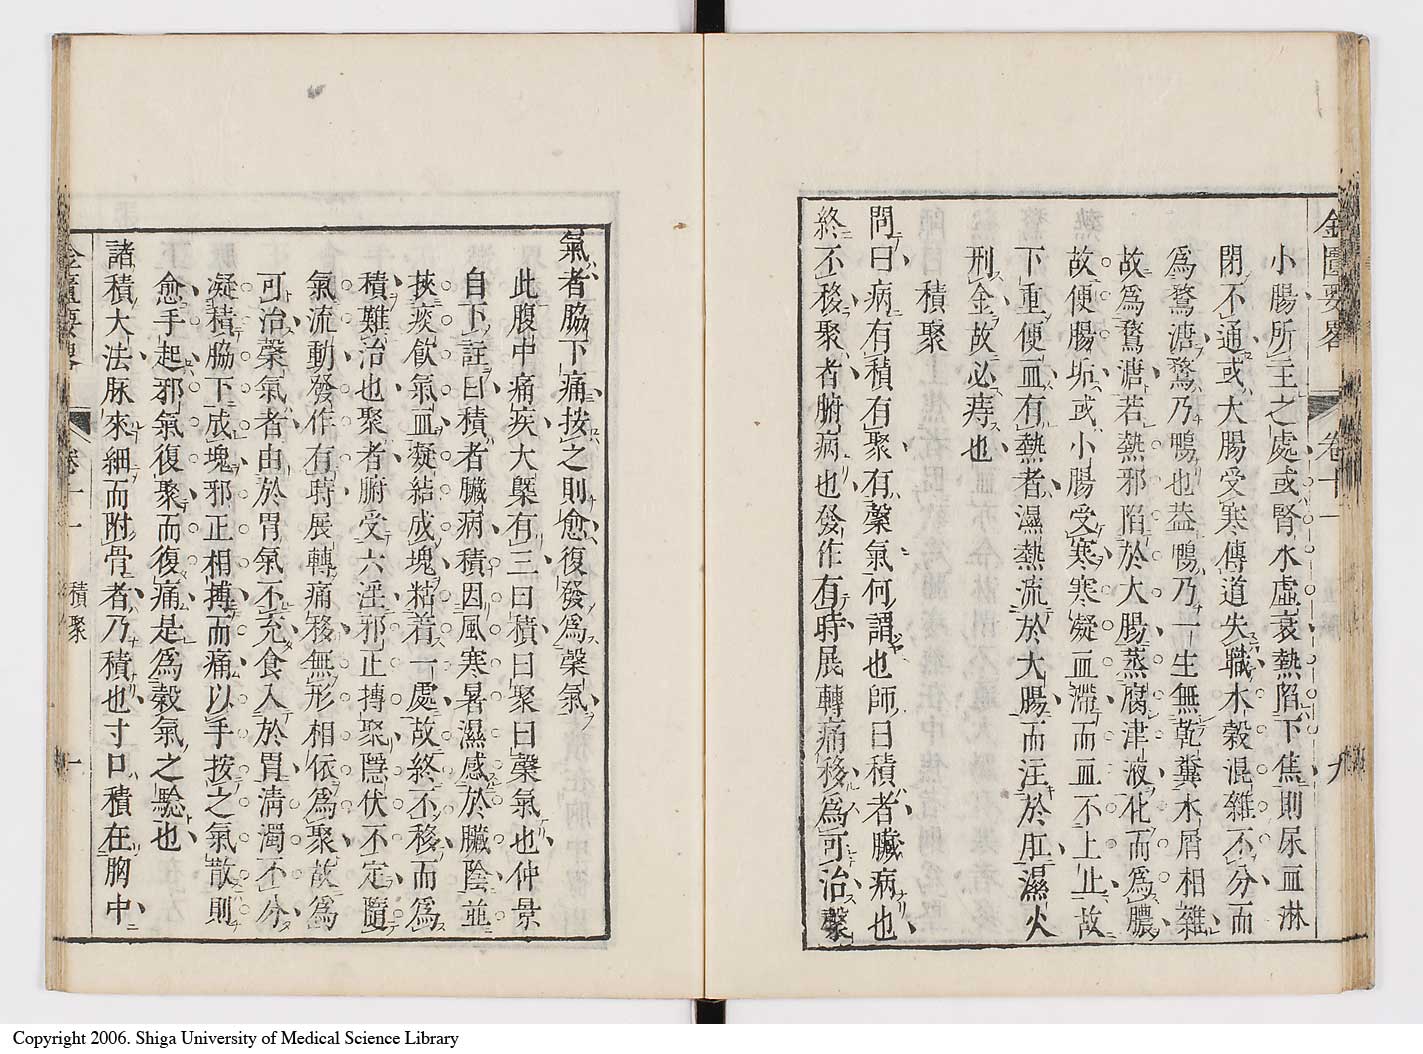 金匱要畧 卷十一 九
小腸所主之處或腎水虛衰熱陷下焦則尿血淋
閉不通或大腸受寒傳道失職水穀混雜不分而
爲鶩溏鶩乃鴨也葢鴨乃一生無乾糞水屑相雜
故爲鶩溏若熱邪陷於大腸蒸腐津液化而爲膿
故便腸垢或小腸受寒寒凝血滯而血不上止故
下重便血有熱者濕熱流於大腸而注於肛濕火
刑金故必痔也
積聚
問曰病有積有聚有䅽氣何謂也師曰積者臟病也
終不移聚者腑病也發作有時展轉痛移爲可治䅽
氣者脇下痛按之則愈復發爲䅽氣
此腹中痛疾大槩有三曰積曰聚曰䅽氣也仲景
自下註曰積者臟病積因風寒暑濕感於臟陰並
挾痰飮氣血凝結成塊粘着一處故終不移而爲
積難治也聚者腑受六淫邪正搏聚隱伏不定隨
氣流動發作有時展轉痛移無形相依爲聚故爲
可治䅽氣者由於胃氣不充食入於胃淸濁不分
凝積脇下成塊邪正相搏而痛以手按之氣散則
愈手起邪氣復聚而復痛是爲穀氣之騐也
諸積大法脉來細而附骨者乃積也寸口積在胸中
金匱要畧 卷十一 積聚 十
Copyright 2006. Shiga University of Medical Science Library